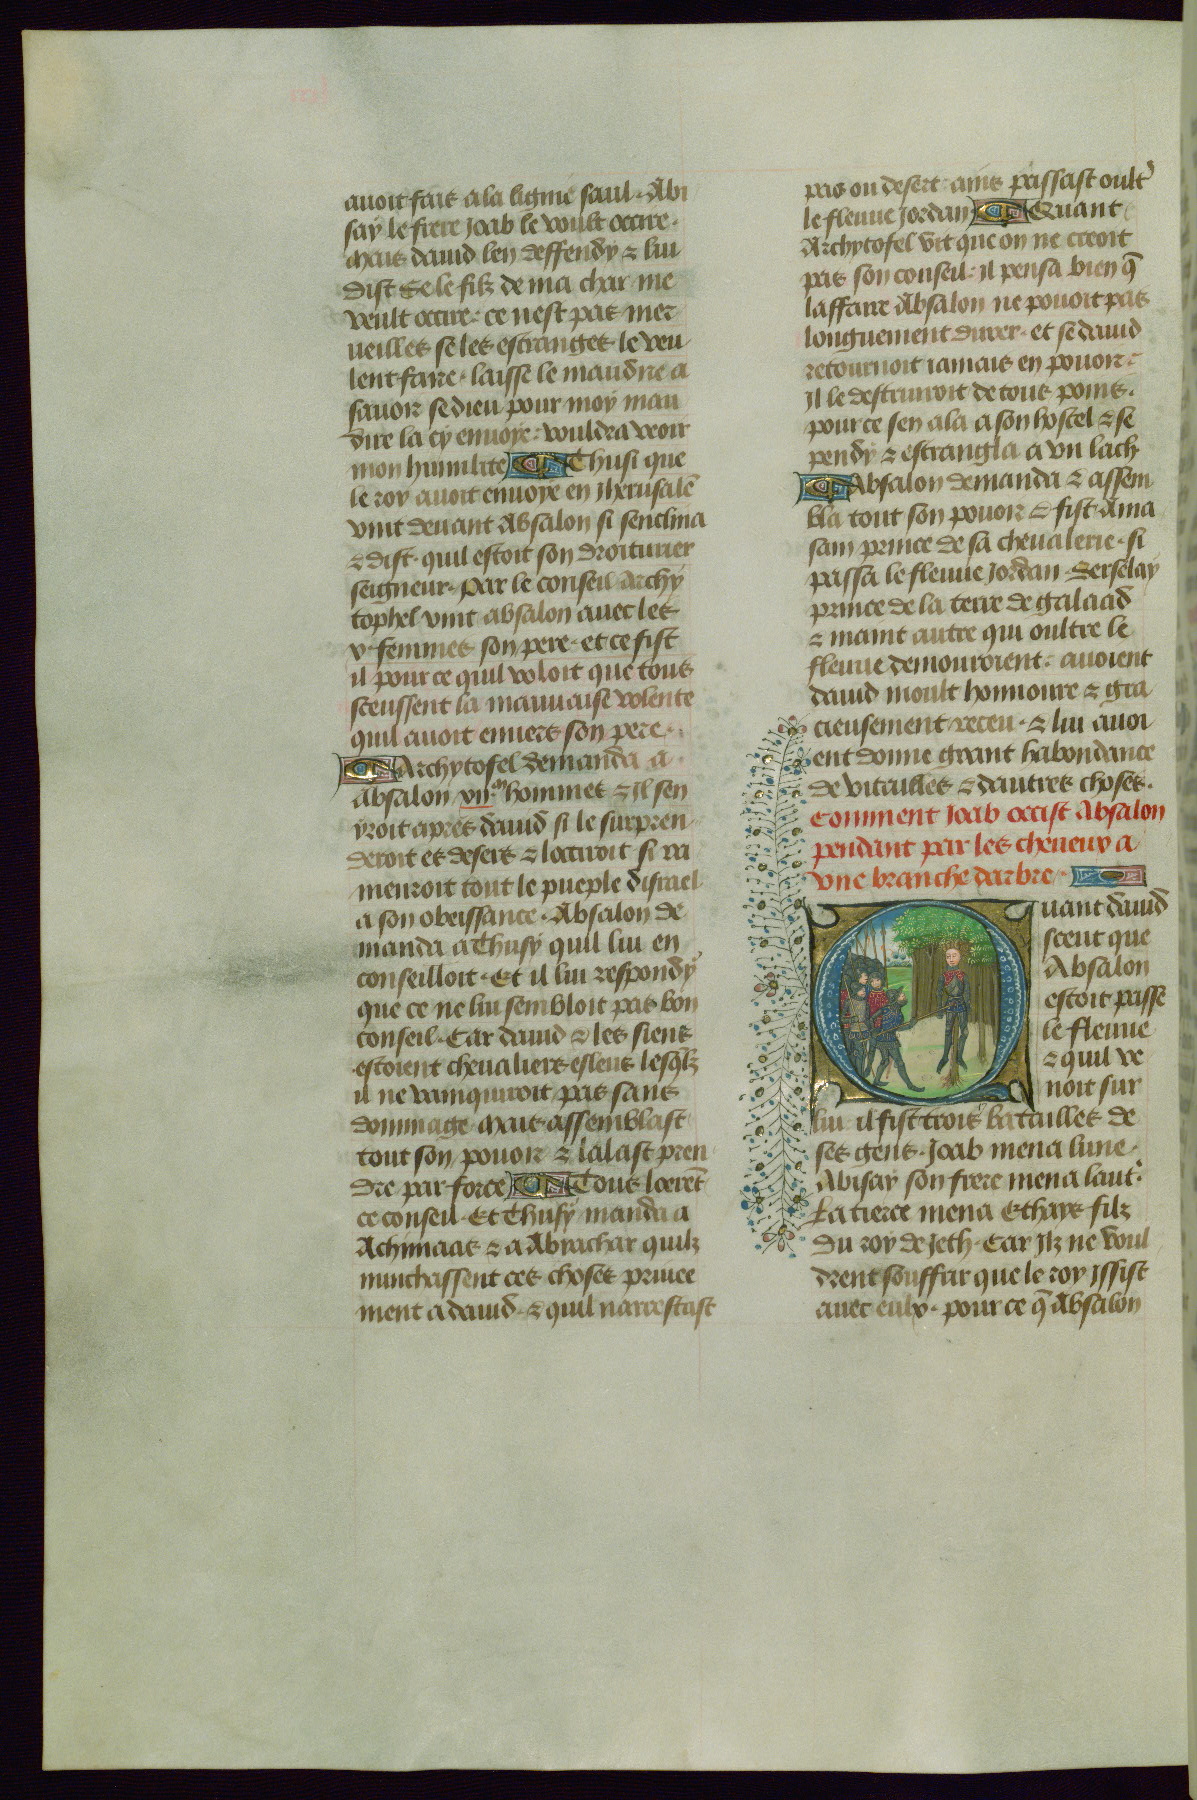 auoit fait a la lignie saul. Abi
say le frere Joab le voult occire.
Mais dauid len deffendy ⁊ lui
dist Se le filz de ma char me
veult occire: ce nest pas mer
ueilles se les estranges le veu
lent faire. laisse le maudire a
sauoir se dieu pour moy mau
dire la cy enuoye: vouldra veoir
mon humilite Thusi que
le roy auoit enuoye en Jherusalē
vint deuant Absalon si senclina
⁊ dist. quil estoit son droiturier
seigneur. Par le conseil Archy
tophel vint absalon auec les
v. femmes son pere. et ce fist
il pour ce quil voloit que tous
sceussent la mauuaise volente
quil auoit enuers son pere.
Archytofel demanda a
Absalon vii.m hommes ⁊ il sen
yroit apres dauid si le surpren
deroit es desers ⁊ lociroit si ra
menroit tout le pueple disrael
a son obeissance. Absalon de
manda a Thusy quil lui en
conseilloit. Et il lui respondy
que ce ne lui sembloit pas bon
conseil. Car dauid ⁊ les siens
estoient cheualiers esleus lesqlz
il ne vainquiroit pas sans
dommage. Mais assemblast
tout son pouoir ⁊ lalast pren
dre par force Tous loerēt
ce conseil. Et Thusy manda a
Achimaas ⁊ a Abiachar quilz
nunchassent ces choses priuee
ment a dauid. ⁊ quil narrestast
pas ou desert ains passast oult'
le fleuue Jordan Quant
Archytofel vit que on ne creoit
pas son conseil: il pensa bien q̄
laffaire Absalon ne pouoit pas
longuement durer. et se dauid
retournoit iamais en pouoir:
Il le destruiroit de tous poins.
pour ce sen ala a son hostel ⁊ se
pendy ⁊ estrangla a vn lach
Absalon demanda ⁊ assem
bla tout son pouoir ⁊ fist Ama
sam prince de sa cheualerie. si
passa le fleuue Jordan. Berselay
prince de la terre de galaad
⁊ maint autre qui oultre le
fleuue demouroient: auoient
dauid moult honnoure ⁊ gra
cieusement receu. ⁊ lui auoi
ent donne grant habondance
de vitailles ⁊ dautres choses.
Comment Joab occist Absalon
pendant par les cheueux a
vne branche darbre
Quant dauid
sceut que
Absalon
estoit passe
le fleuue
⁊ quil ve
noit sur
lui il fist trois batailles de
ses gens. Joab mena lune.
Abisay son frere mena laut'.
La tierce mena Ethays filz
du roy de Jeth. Car Ilz ne voul
drent souffrir que le roy Issist
auec eulx. pour ce q̄ Absalon